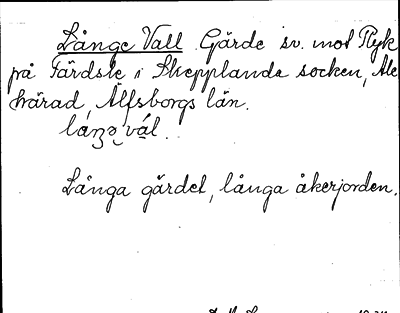 Långe Vall Gärde sv. mot Ryk
på Färdsle i Skepplanda socken, Ale
härad, Älfsborgs län.
láŋə vál.
Långa gärdet, långa åkerjorden.